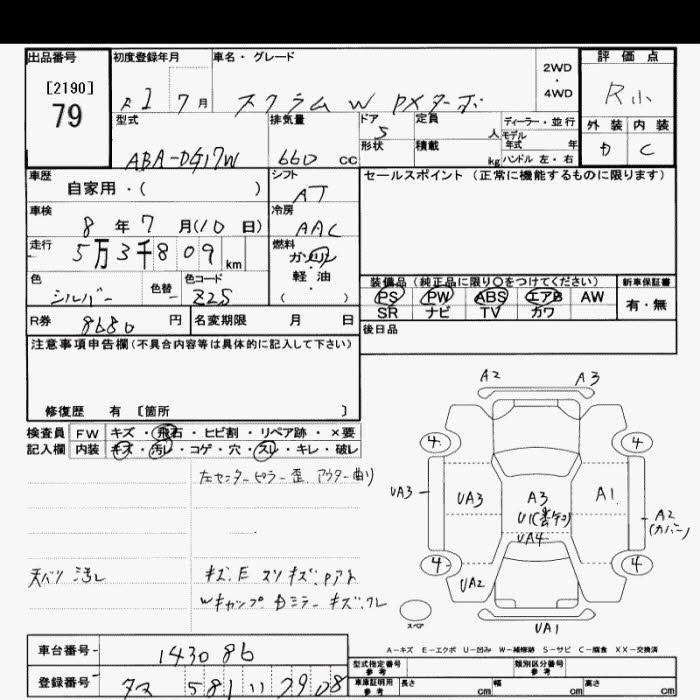 出品番号
[2190]
79
初度登録年月
R1 7月
車名・グレード
スクラム W PXターボ
2WD
・
4WD
評価点
R小
外装 内装
D C
型式
ABA-DG17W
排気量
660 cc
ドア
5
形状
定員
人
積載
kg
ディーラー・並行
モデル
年式 年
ハンドル 左・右
車歴
自家用・( )
シフト
AT
セールスポイント(正常に機能するものに限ります)
車検
8年 7月(10日)
冷房
AAC
走行
5万3千809km
燃料
ガソリン
・
軽油
( )
色
シルバー
色替
色コード
Z2S
装備品(純正品に限り〇をつけてください)
PS PW ABS エアB AW
SR ナビ TV カワ
新車保証書
有・無
R券 8680円
名変期限 月 日
後日品
注意事項申告欄(不具合内容等は具体的に記入して下さい)
修復歴 有 〔箇所 〕
検査員
記入欄
FW キズ・飛石・ヒビ割・リペア跡・×要
内装 キズ・汚レ・コゲ・穴・スレ・キレ・破レ
左センターピラー歪 アウター曲り
天バリ 汚レ
キズ、E スリキズ、Pアト
Wキャップ Dミラーキズ、ワレ
A2 A3
4 4
UA3 UA3 A3 A1 A2
(カバー)
UA4
4 4
UA2
スペア
UA1
A-キズ E-エクボ U-凹み W-補修跡 S-サビ C-腐食 XX-交換済
車台番号 143086
登録番号 581 い 2908
型式指定番号
参考
類別区分番号
参考
車庫証明用
参考
長さ cm
幅 cm
高さ cm